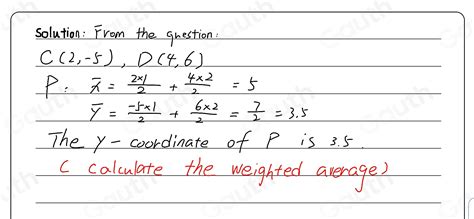 Solution: From the question:
C(2,-5), D(4,6)
P: x̄ = 2×1/2 + 4×2/2 = 5
ȳ = -5×1/2 + 6×2/2 = 7/2 = 3.5
The y-coordinate of P is 3.5.
( calculate the weighted average)